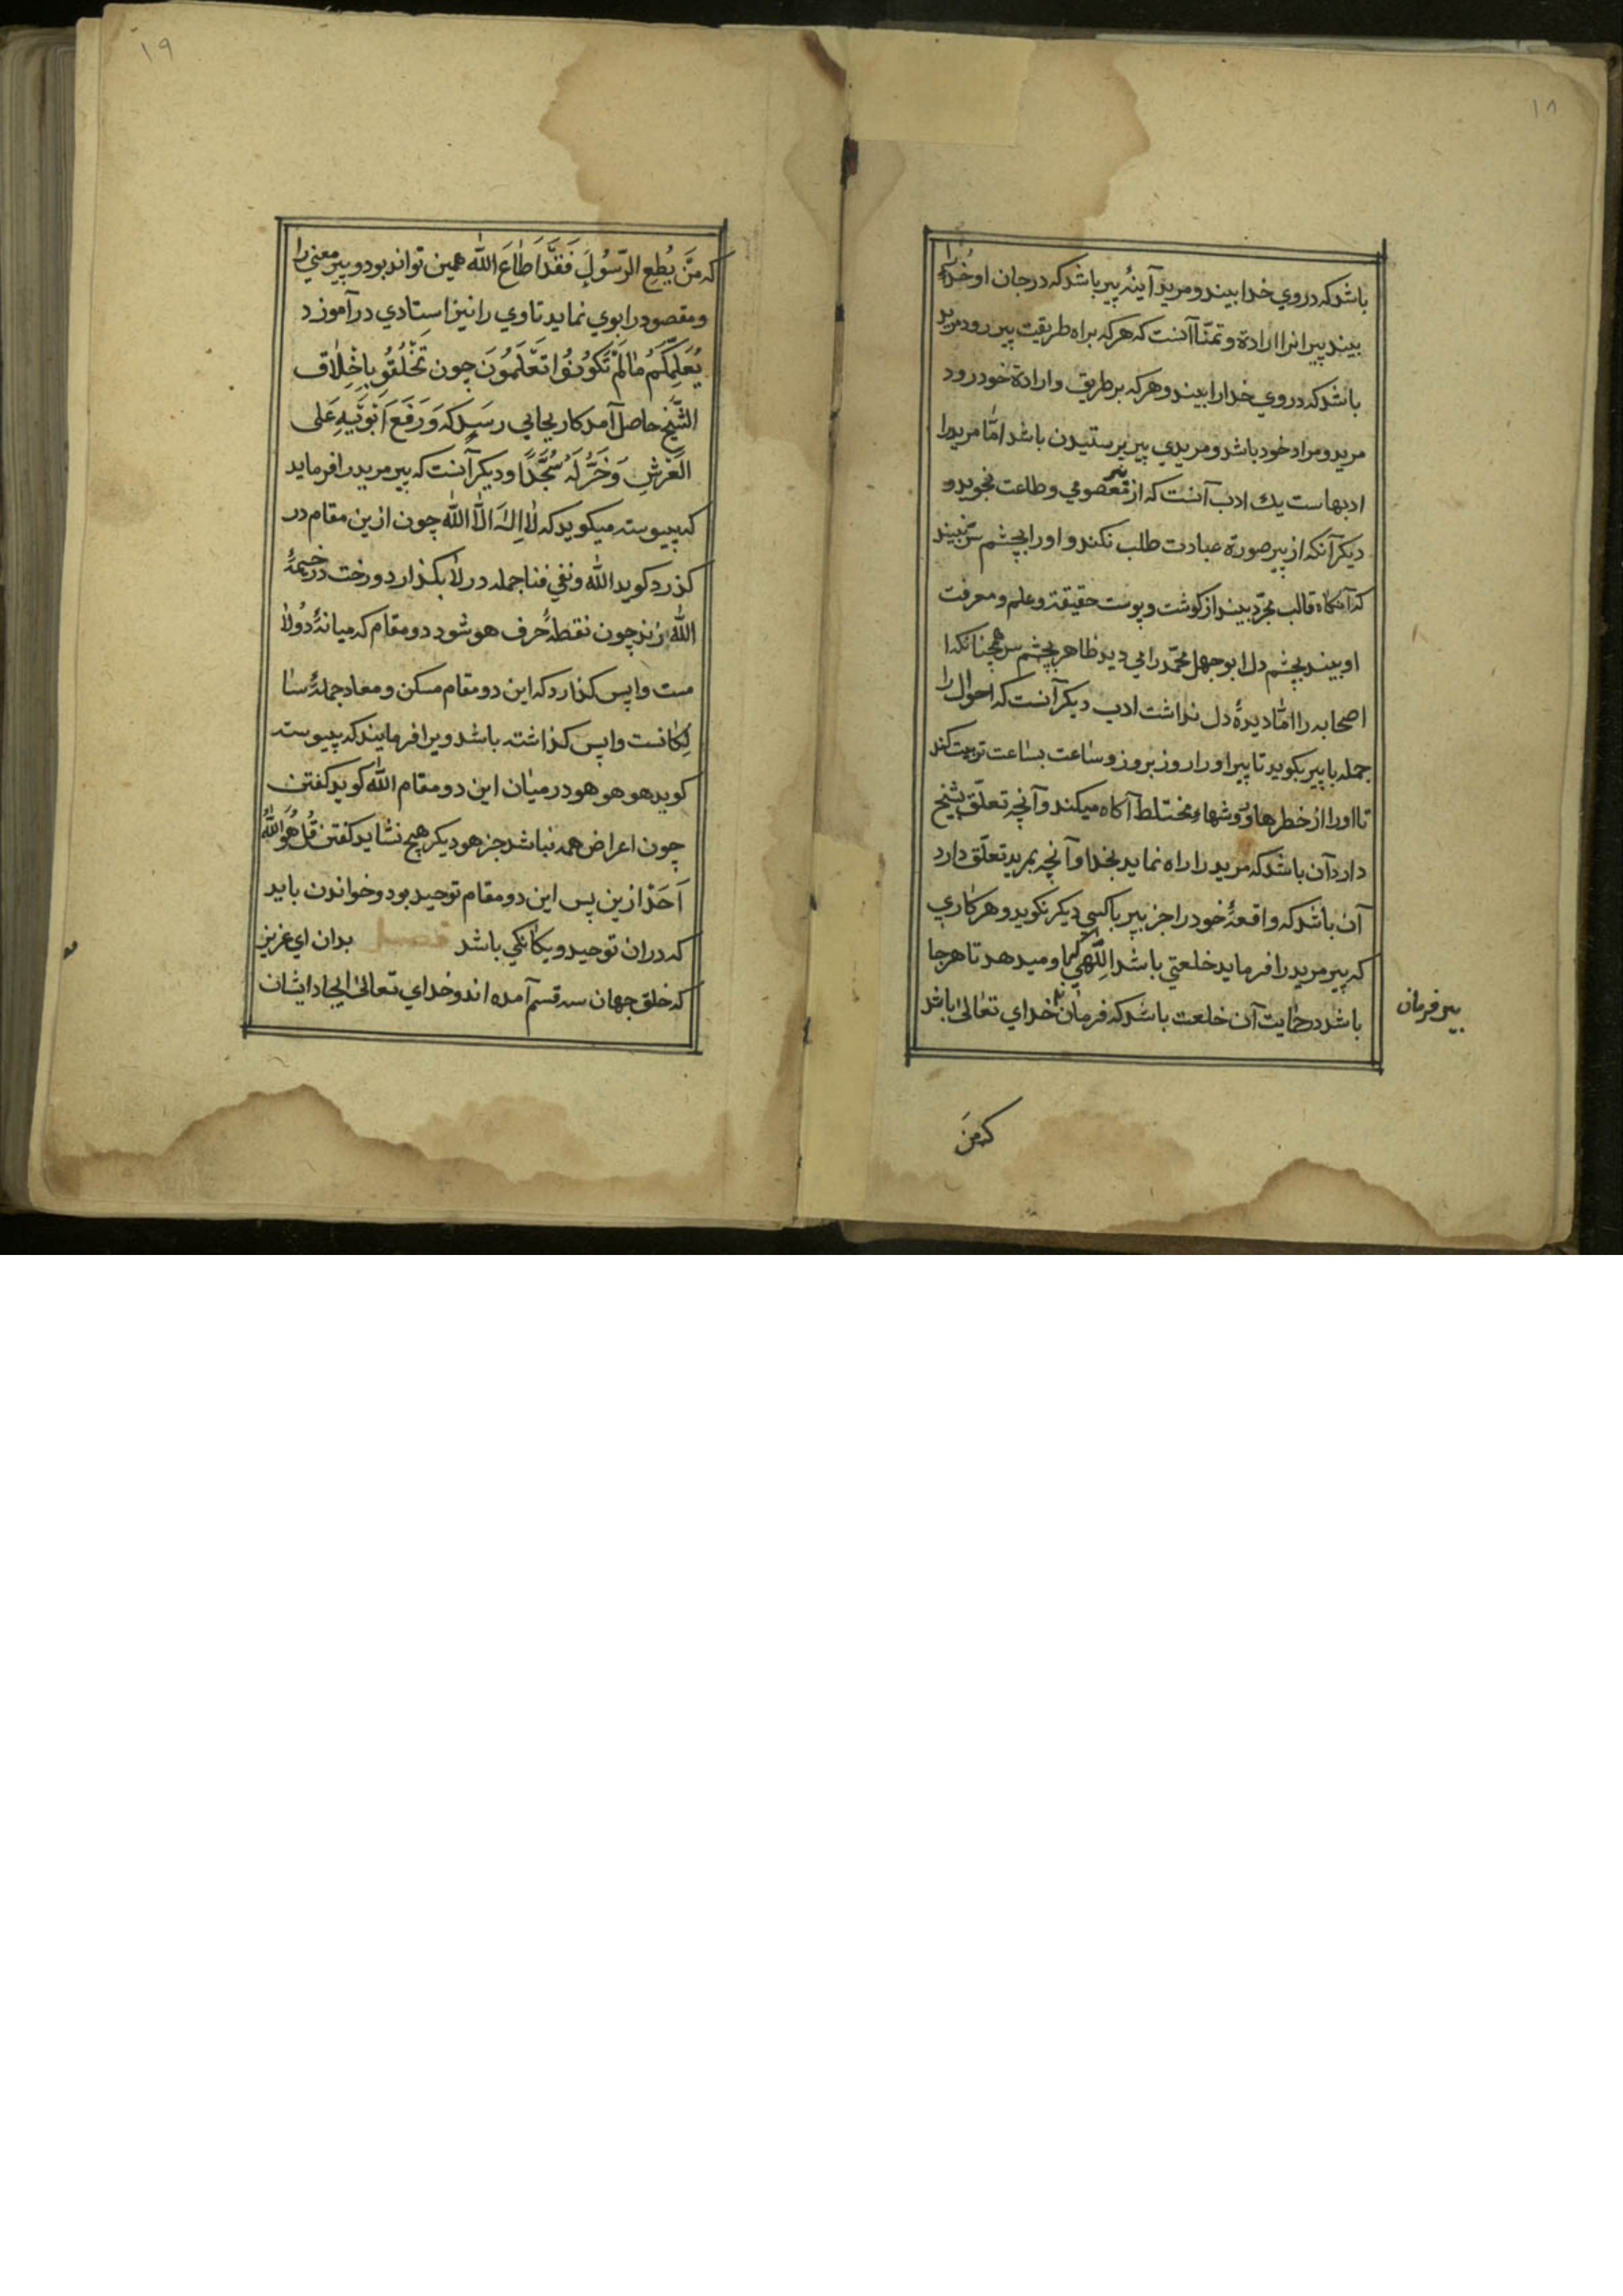 ١٨
باشد كه در روي خدا بيند و مريد آينهٔ پير باشد كه در جان او خدا را
بيند پيرانرا ارادة و تمنّا آنست كه هر كه براه طريقت پير رود مريد
باشد كه در روي خدا را بيند و هر كه بر طريق و ارادة خود رود
مريد و مراد خود باشد و مريدي پير پرستيدن باشد امّا مريد را
ادبهاست يك ادب آنست كه از پير معصومي و طاعت نجويد و
ديكر آنكه از پير صورة عبادت طلب نكند و او را بچشم سر نبيند
كه آنكاه قالب مجرّد بيند از كوشت و پوست حقيقة و علم و معرفت
او بيند بچشم دل ابو جهل محمّد را مي ديد ظاهر بچشم سر همچنانكه ا
اصحابه را امّا ديدهٔ دل نداشت ادب ديكر آنست كه احوال را
جمله با پير بكويد تا پير او را روز بروز و ساعت بساعت تربيت كند
تا او را از خطرها و روشهاء مختلط آكاه ميكند و آنچه تعلّق بشيخ
دارد آن باشد كه مريد را راه نمايد بخدا و آنچه بمريد تعلّق دارد
آن باشد كه واقعهٔ خود را جز بپير با كسي ديكر نكويد و هر كاري
كه پير مريد را فرمايد خلعتي باشد الٰهي كه باو ميدهد تا هر جا
باشد در حمايت آن خلعت باشد كه فرمان خداي تعالىٰ باشد
پير فرمان
كه مَن
١٩
كه مَنْ يُطِعِ الرَّسُولَ فَقَدْ اَطٰاعَ اللّٰه همين تواند بود و پير معني را
و مقصود را بوي نمايد تا وي را نيز استادي در آموزد
يُعَلِّمُكُمْ مٰا لَمْ تَكُونُوا تَعْلَمُونَ چون تَخَلَّقُو بِاَخْلاٰقِ
الشَّيْخِ حاصل آمد كار بجايي رسيد كه وَ رَفَعَ اَبَوَيْهِ عَلَى
الْعَرْشِ وَ خَرُّ لَهُ سُجَّدًا و ديكر آنست كه پير مريد را فرمايد
كه پيوسته ميكويد كه لاٰ اِلٰهَ اِلاَّ اللّٰه چون ازين مقام در
كذرد كويد اللّٰه و نفي فنا جمله در لاٰ بكذارد و رخت در خيمهٔ
اللّٰه زند چون نقطهٔ حرف هو شود دو مقام كه ميانهٔ دو لاٰ
ست واپس كذارد كه اين دو مقام مسكن و معاد جملهٔ سٰا
لِكانست واپس كذاشته باشد ويرا فرمايند كه پيوسته
كويد هو هو هو در ميان اين دو مقام اللّٰه كويد كفتن
چون اعراض همه نباشد جز هو ديكر هيچ نشايد كفتن قُلْ هُوَ اللّٰهُ
اَحَدٌ ازين پس اين دو مقام توحيد بود و خواندن بايد
كه در ان توحيد و يكانكي باشد فصل بدان اي عزيز
كه خلق جهان سه قسم آمده اند و خداي تعالىٰ ايجاد ايشان